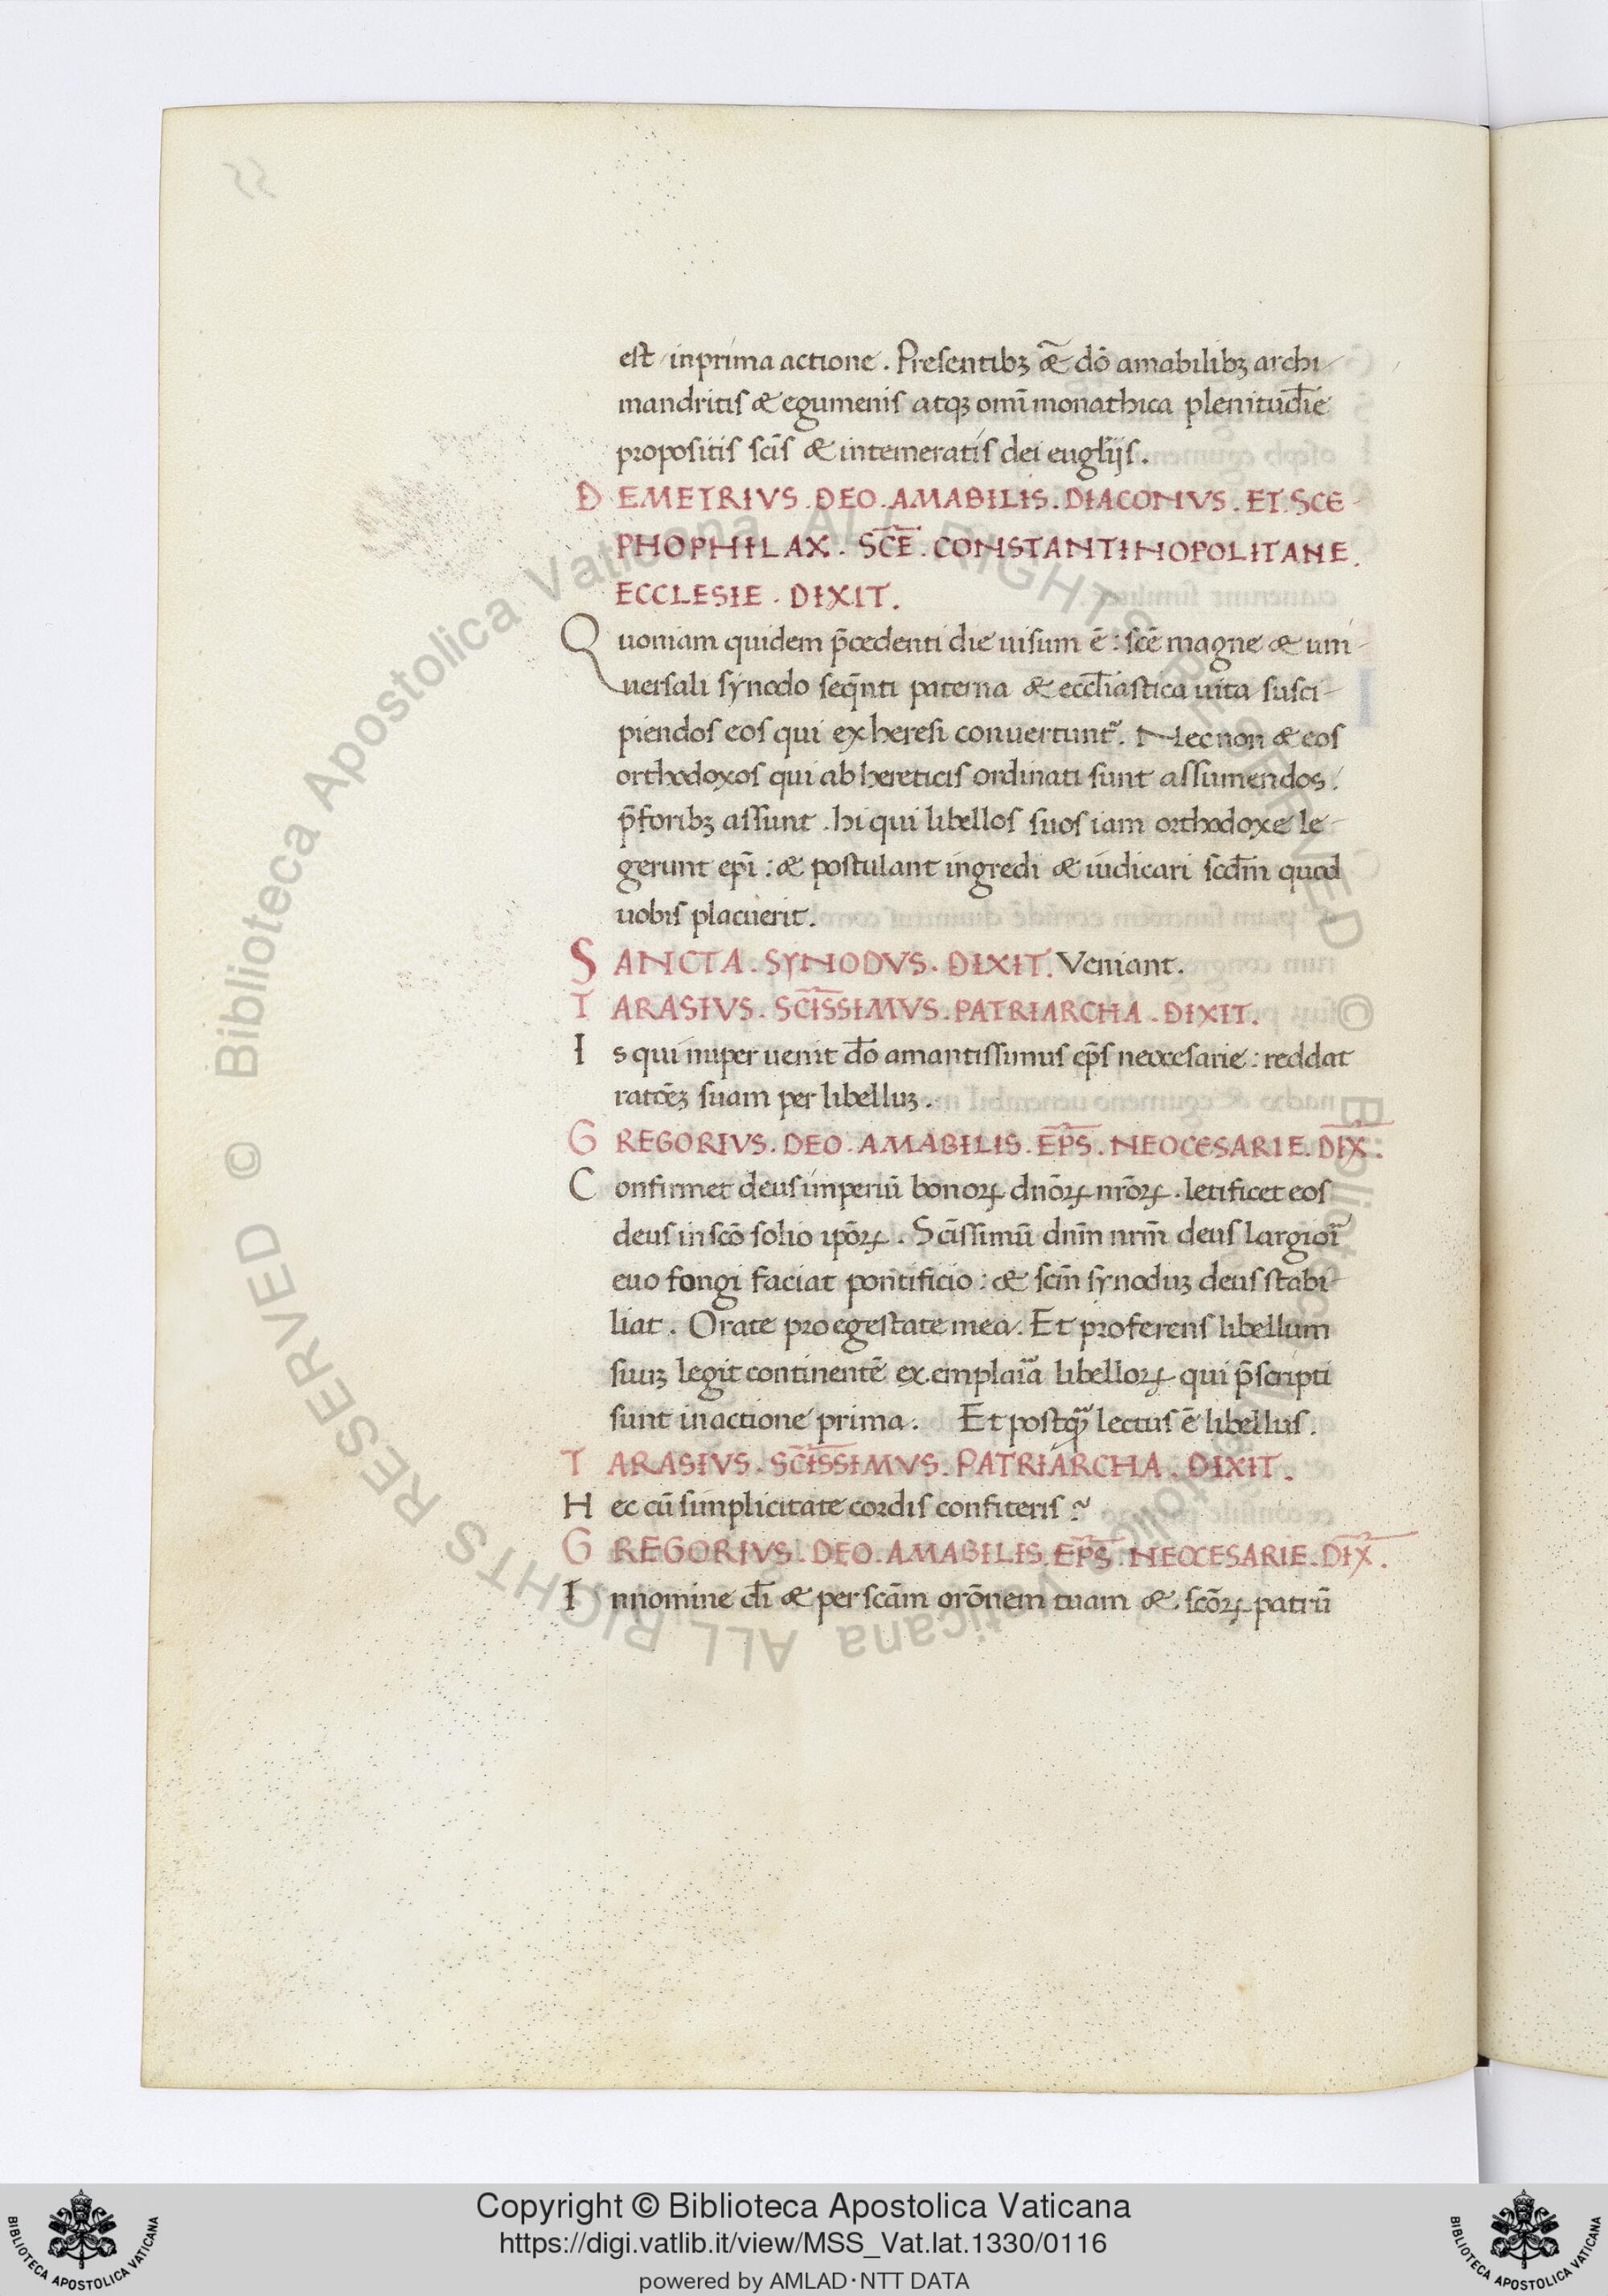 est in prima actione. Presentibꝫ &̄ dō amabilibꝫ archi-
mandritis & egumenis atqꝫ omī monathica plenitud̄ie
propositis scīs & intemeratis dei eugl̄ijs.
DEMETRIVS. DEO. AMABILIS. DIACONVS. ET. SCE-
PHOPHILAX. SC̄E. CONSTANTINOPOLITANE.
ECCLESIE. DIXIT.
Quoniam quidem p̄cedenti die uisum ē: scē magne & uni-
uersali synodo seq̄nti paterna & eccl̄iastica uita susci-
piendos eos qui ex heresi conuertunt᷑. Nec non & eos
orthodoxos qui ab hereticis ordinati sunt assumendos.
p̄foribꝫ assunt. hi qui libellos suos iam orthodoxe le-
gerunt ep̄i: & postulant ingredi & iudicari scd̄m quod
uobis placuerit.
SANCTA. SYNODVS. DIXIT. Veniant.
TARASIVS. SC̄ISSIMVS. PATRIARCHA. DIXIT.
Is qui nuper uenit d̄o amantissimus ep̄s neocesarie: reddat
ratōeꝫ suam per libelluꝫ.
GREGORIVS. DEO. AMABILIS. EP̄S. NEOCESARIE. DIX̄.
Confirmet deus imperiū bonoꝝ dnōꝝ nrōꝝ. letificet eos
deus in scō solio ipōꝝ. Scīssimū dnm̄ nrm̄ deus largiori
euo fongi faciat pontificio: & scm̄ synoduꝫ deus stabi-
liat. Orate pro egestate mea. Et proferens libellum
suuꝫ legit continentē exemplaria libelloꝝ qui p̄scripti
sunt in actione prima. Et postqꝫ̄ lectus ē libellus.
TARASIVS. SC̄ISSIMVS. PATRIARCHA. DIXIT.
Hec cū simplicitate cordis confiteris?
GREGORIVS. DEO. AMABILIS. EP̄S. NEOCESARIE. DIX̄.
In nomine d̄i & per scām orōnem tuam & scōꝝ patrū
Copyright © Biblioteca Apostolica Vaticana
https://digi.vatlib.it/view/MSS_Vat.lat.1330/0116
powered by AMLAD·NTT DATA
BIBLIOTECA APOSTOLICA VATICANA
BIBLIOTECA APOSTOLICA VATICANA
© Biblioteca Apostolica Vaticana ALL RIGHTS RESERVED © Biblioteca Apostolica Vaticana ALL RIGHTS RESERVED